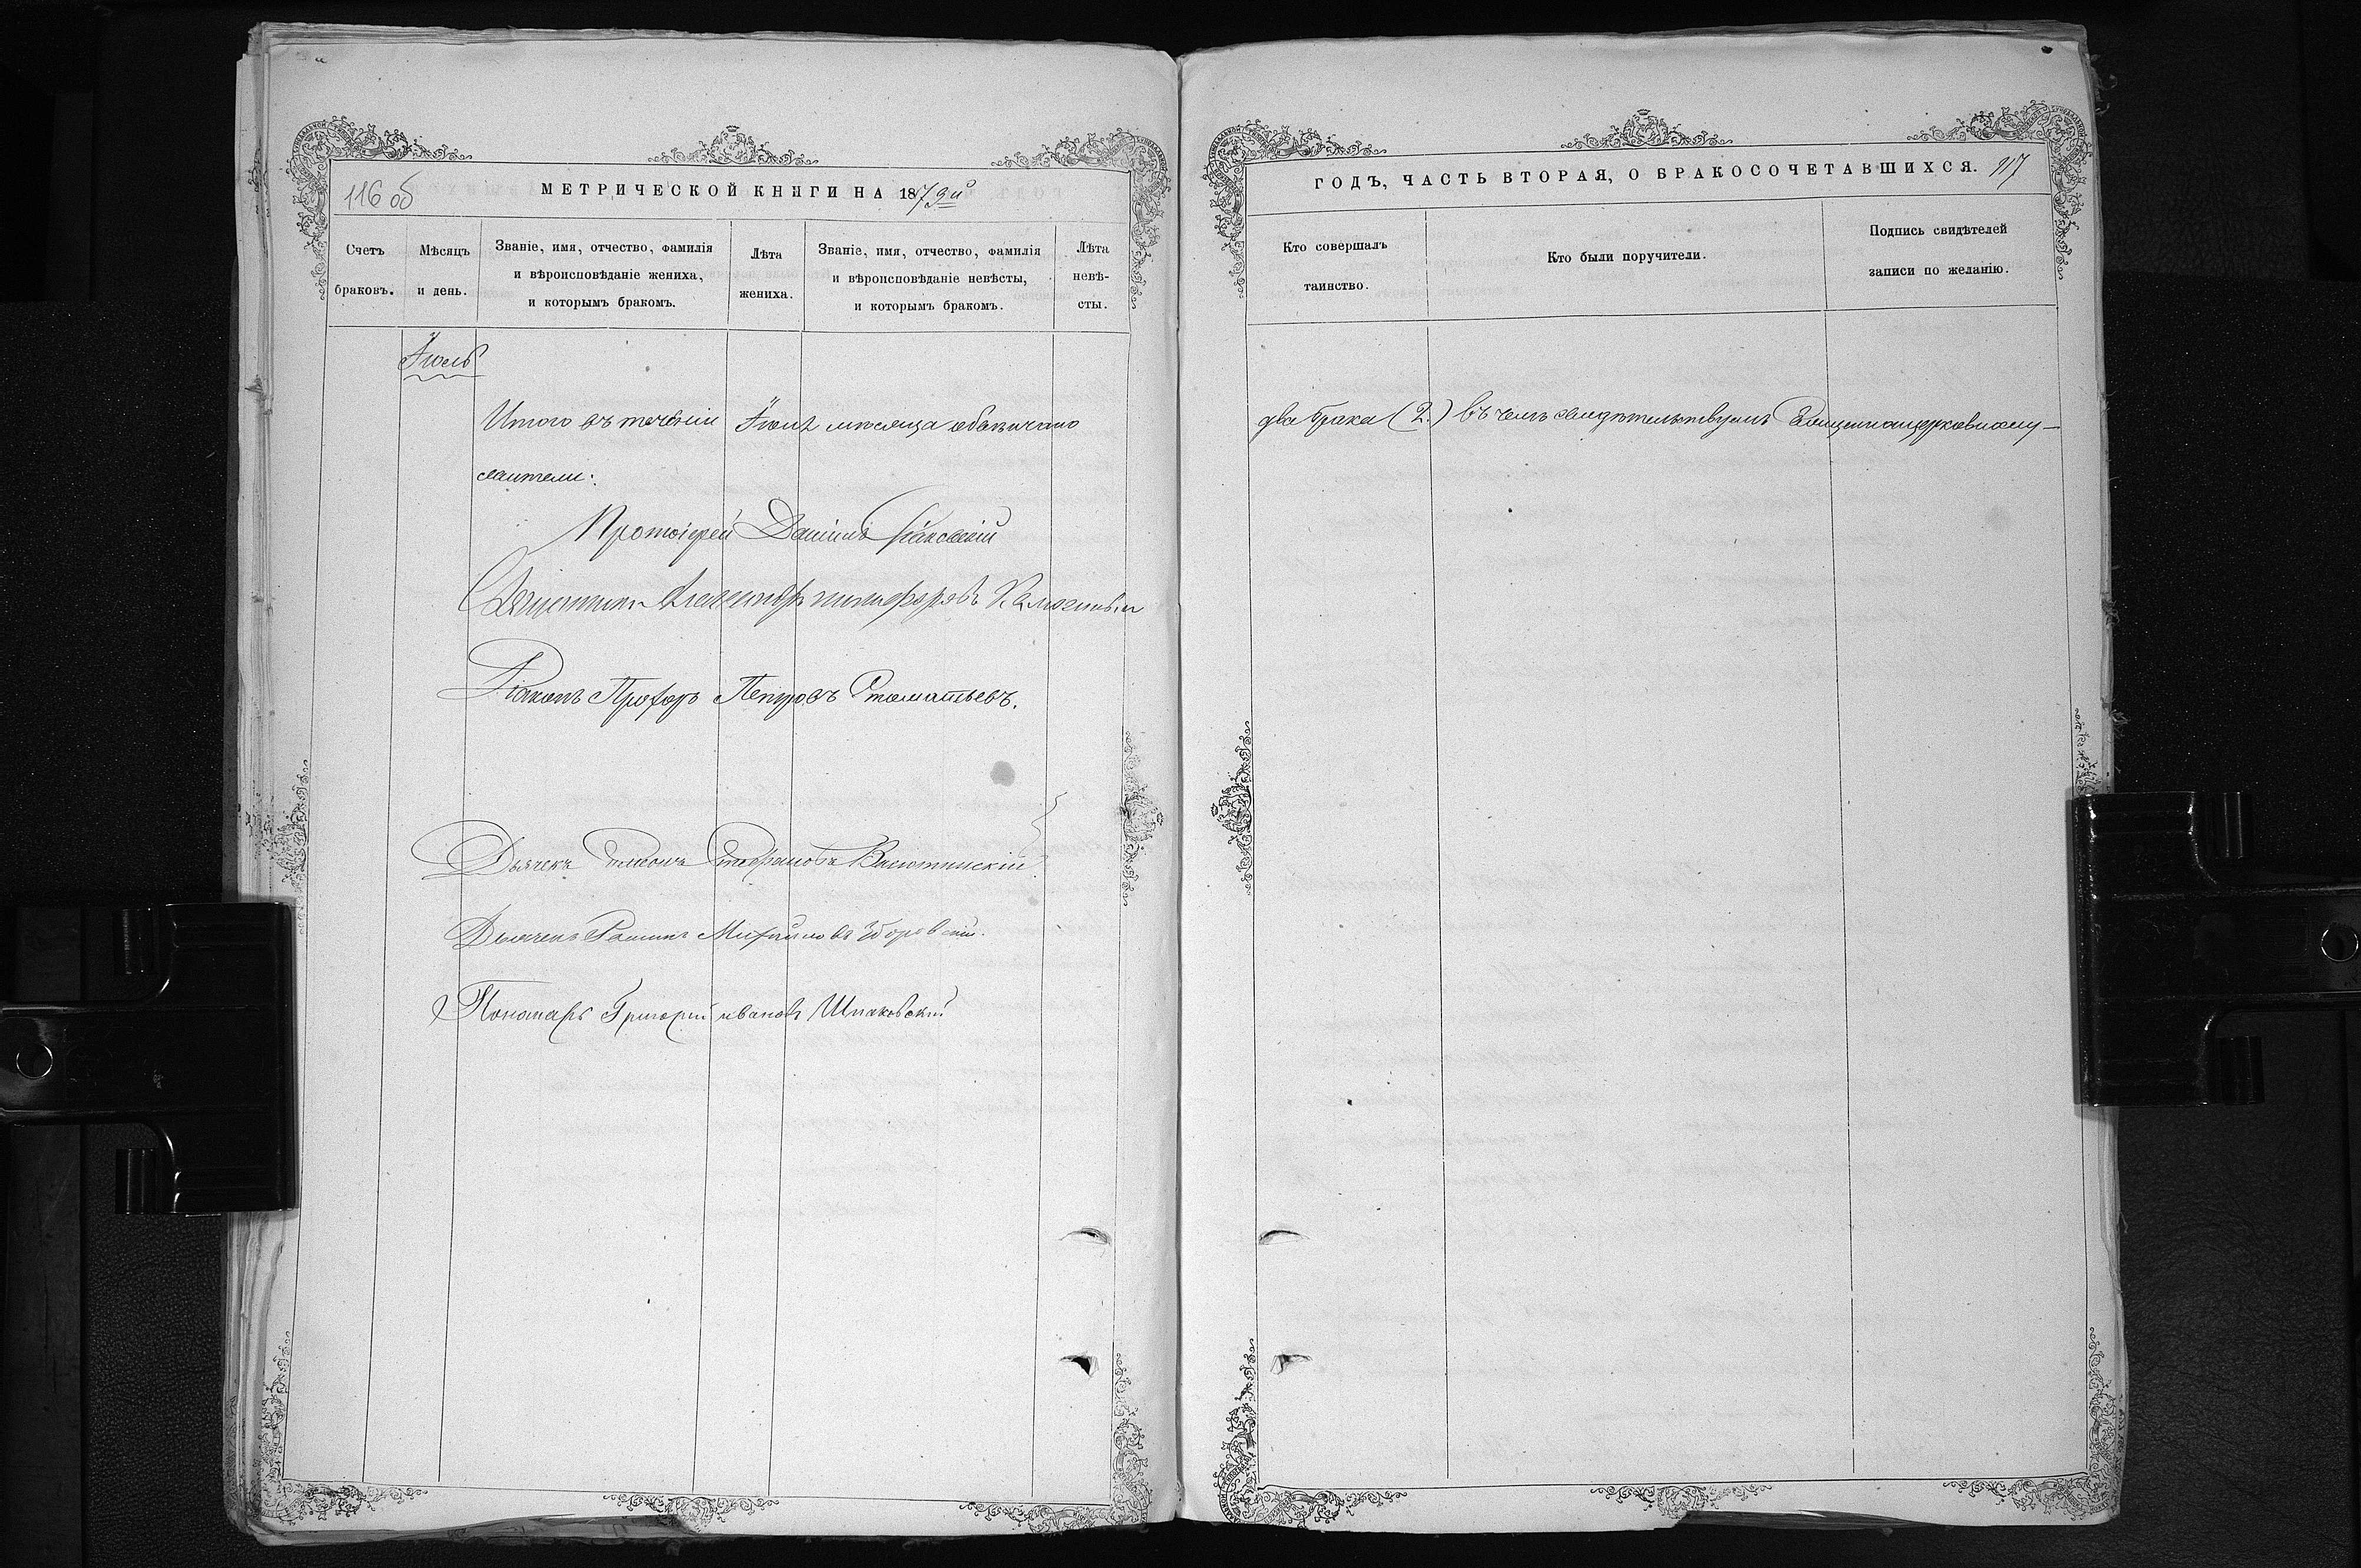 116 об
МЕТРИЧЕСКОЙ КНИГИ НА 1879й
Счетъ браковъ.
Мѣсяцъ и день.
Званіе, имя, отчество, фамилія
и вѣроисповѣданіе жениха,
и которымъ бракомъ.
Лѣта жениха.
Званіе, имя, отчество, фамилія
и вѣроисповѣданіе невѣсты,
и которымъ бракомъ.
Лѣта
невѣ-
сты.
Іюль
Итого въ теченіи Іюля мѣсяца обвѣнчано
служители:
Протоіерей Даніилъ
Священникъ Александръ Никифоровъ
Діаконъ Прохоръ Петровъ Стоматьевъ.
Дьячекъ Стефановъ
Дьячекъ Михайловъ Зборовскій.
Пономарь Григорій Ивановъ Шпаковскій
ГОДЪ, ЧАСТЬ ВТОРАЯ, О БРАКОСОЧЕТАВШИХСЯ. 117
Кто совершалъ
таинство.
Кто были поручители.
Подпись свидѣтелей
записи по желанію.
два брака (2.) въ чемъ свидѣтельствуемъ Священноцерковнослу-